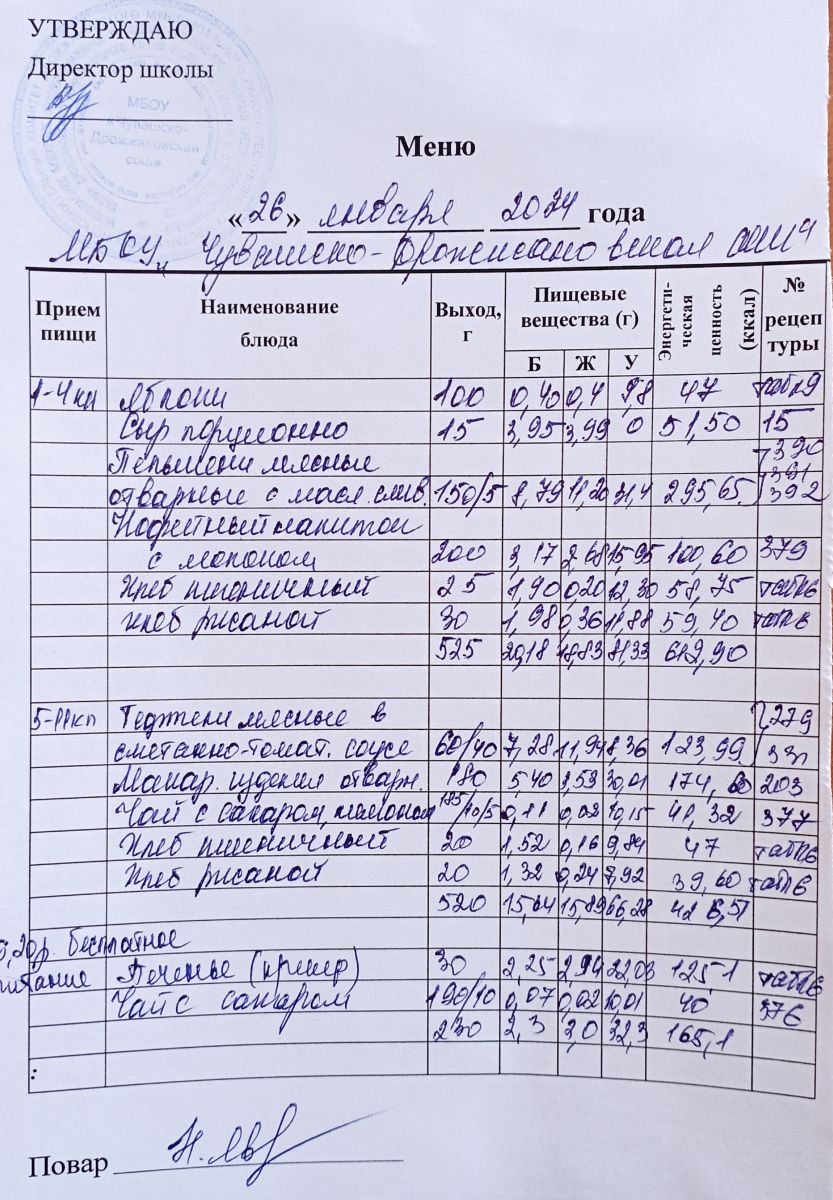 УТВЕРЖДАЮ
Директор школы
МБОУ
«Чувашско-
Дрожжановская
сош»
Меню
«26» января 2024 года
МБОУ „Чувашско-Дрожжановская СОШ"
Прием пищи Наименование блюда Выход, г Пищевые вещества (г) Энергети-ческая ценность (ккал) № рецептуры
Б Ж У
1-4 кл Яблоки 100 0,40 0,4 9,8 47 табл 9
Сыр порционно 15 3,95 3,99 0 51,50 15
Пельмени мясные 390
отварные с масл. слив. 150/5 8,79 11,20 31,4 295,65 391 392
Кофейный напиток
с молоком 200 3,17 2,68 15,95 100,60 379
Хлеб пшеничный 25 1,90 0,20 12,30 58,75 табл 6
хлеб ржаной 30 1,98 0,36 11,88 59,40 табл 6
525 20,18 18,83 81,33 612,90
5-11 кл Тефтели мясные в 279
сметанно-томат. соусе 60/40 7,28 11,94 8,36 123,99 331
Макар. изделия отварн. 180 5,40 3,53 30,01 174,60 203
Чай с сахаром, лимоном 185/10/5 0,11 0,02 10,15 41,32 377
Хлеб пшеничный 20 1,52 0,16 9,84 47 табл 6
Хлеб ржаной 20 1,32 0,24 7,92 39,60 табл 6
520 15,64 15,89 66,28 426,51
5,20р. бесплатное
питание Печенье (крекер) 30 2,25 2,94 22,03 125,1 табл 6
Чай с сахаром 190/10 0,07 0,02 10,01 40 376
230 2,3 3,0 32,3 165,1
:
Повар